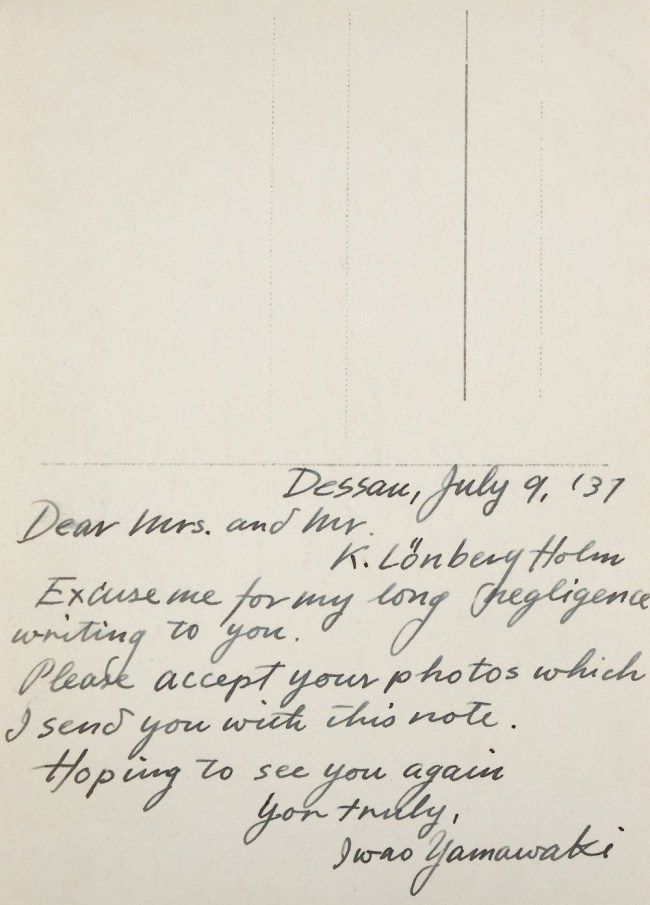 Dessau, July 9, '31
Dear Mrs. and Mr.
K. Lönberg Holm
Excuse me for my long negligence
writing to you.
Please accept your photos which
I send you with this note.
Hoping to see you again
Yor truly,
Iwao Yamawaki